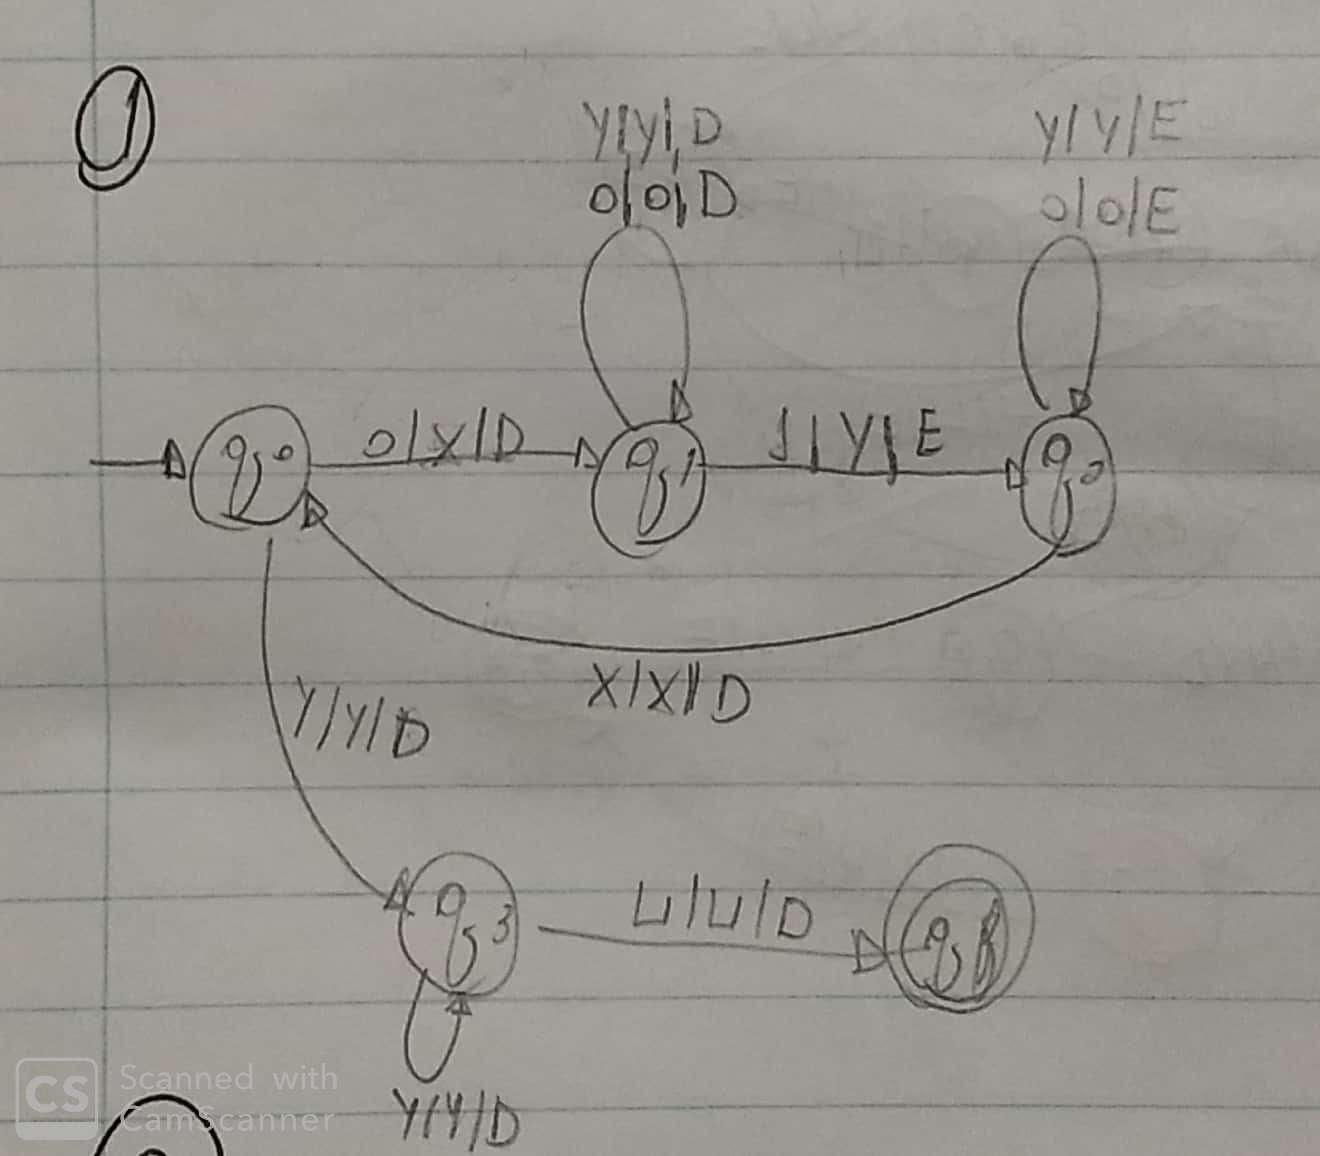 1
Y/Y/D
0/0/D
Y/Y/E
0/0/E
q0
0/X/D
q1
1/Y/E
q2
X/X/D
Y/Y/D
q3
⊔/⊔/D
qf
Y/Y/D
CS
Scanned with
CamScanner